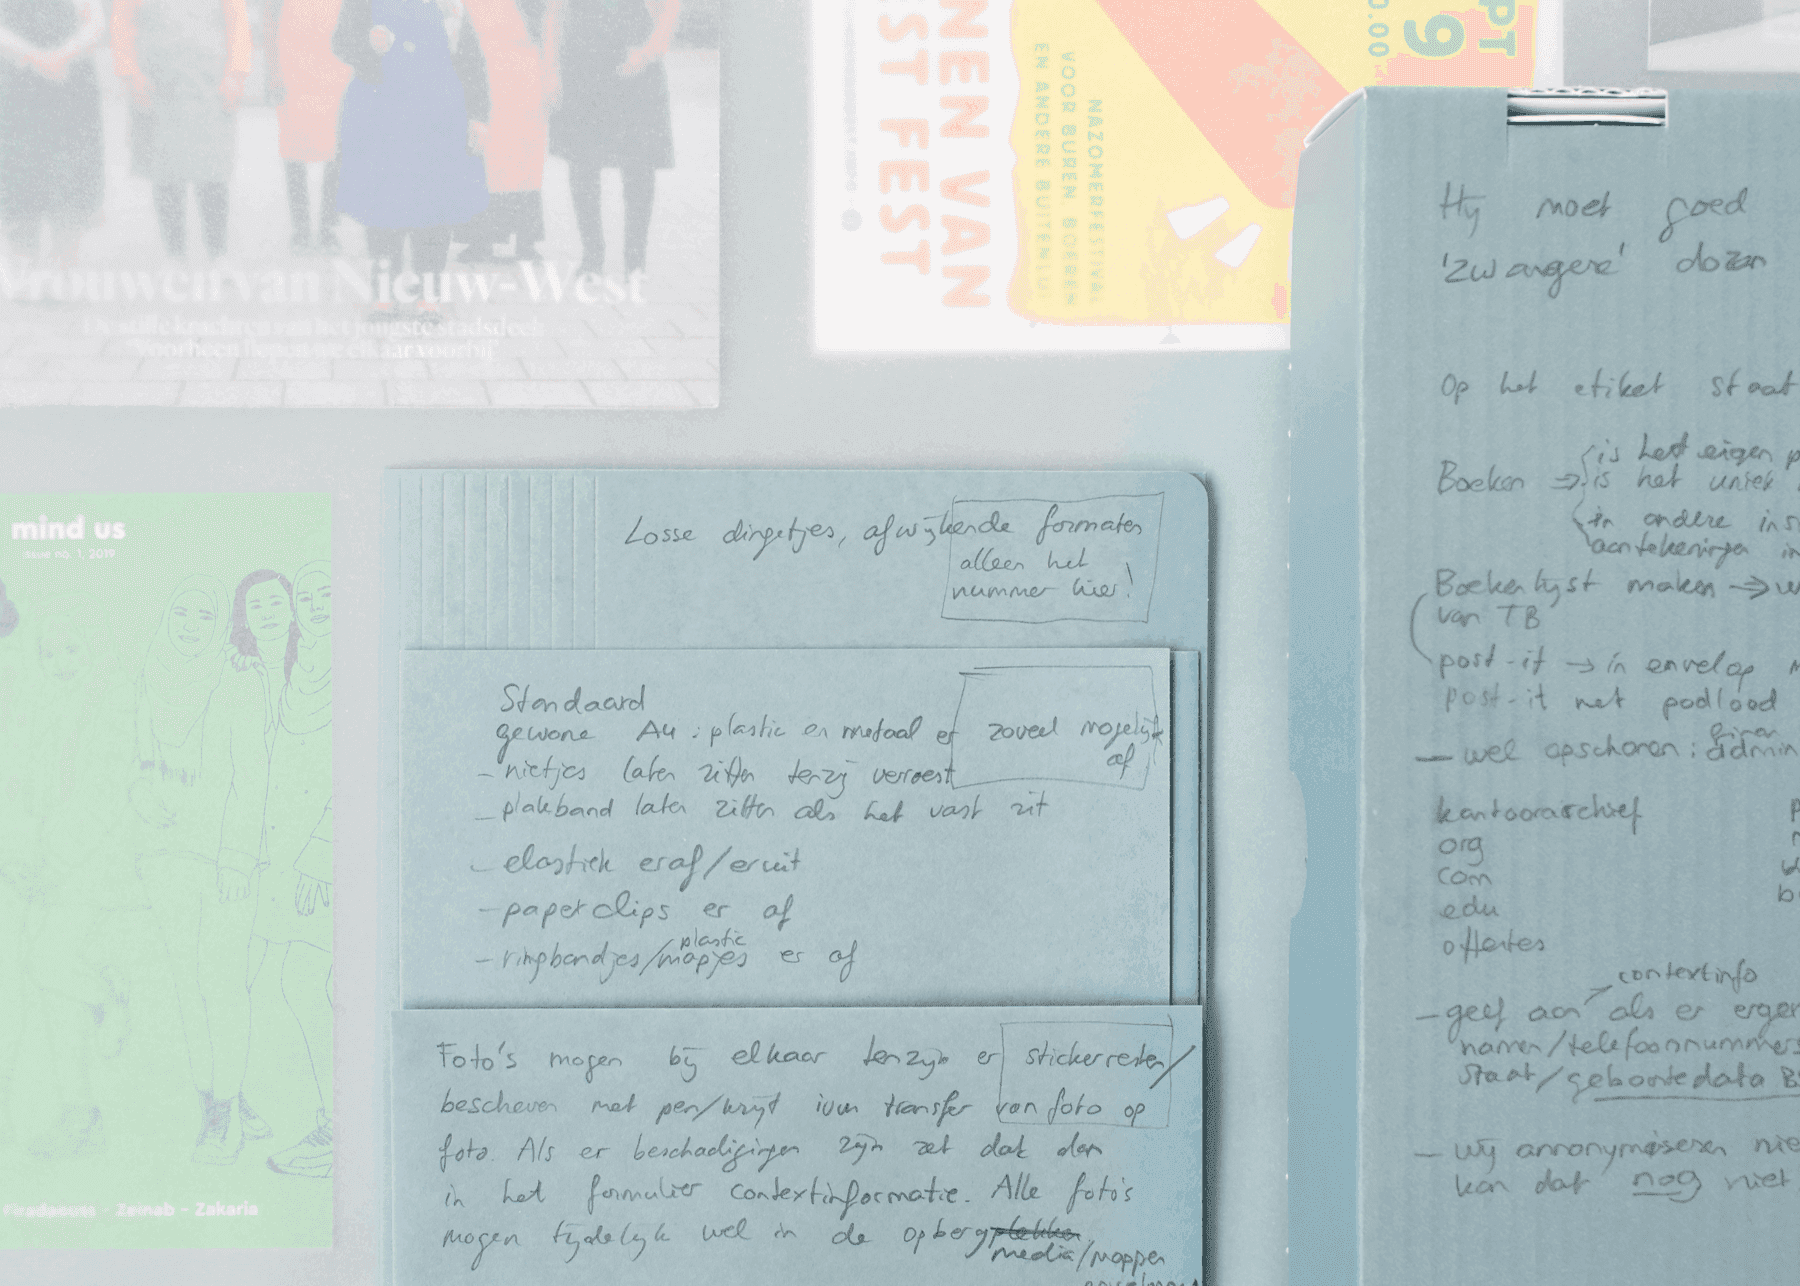 Vrouwen van Nieuw-West
De stille krachten van het jongste stadsdeel
'Voorheen liepen we elkaar voorbij'
NEN VAN
EST FEST
NAZOMERFESTIVAL
VOOR BUREN, BOEREN
EN ANDERE BUITENLUI
PT
9
0.00
mind us
issue no. 1, 2019
Firadaouss - Zainab - Zakaria
Losse dingetjes, afwijkende formaten
alleen het
nummer hier!
Standaard
gewone A4 : plastic en metaal er zoveel mogelijk
af
- nietjes laten zitten tenzij verroest
- plakband laten zitten als het vast zit
- elastiek eraf/eruit
- paperclips er af
- ringbandjes/plastic mapjes er af
Foto's mogen bij elkaar tenzijn er stickerresten/
beschreven met pen/krijt ivm transfer van foto op
foto. Als er beschadigingen zijn zet dat dan
in het formulier contextinformatie. Alle foto's
mogen tijdelijk wel in de opbergplekken
media/mappen
Hij moet goed
'zwangere' dozen
Op het etiket staat
Boeken => is het eigen p
is het uniek
in andere ins
aantekeningen in
Boekenlijst maken ->
van TB
post-it -> in envelop
post-it met potlood
- wel opschonen : admin
kantoorarchief
org
com
edu
offertes
contextinfo
- geef aan als er erger
namen/telefoonnummers
staat/geboortedata BS
- wij annonymiseren nie
kan dat nog niet